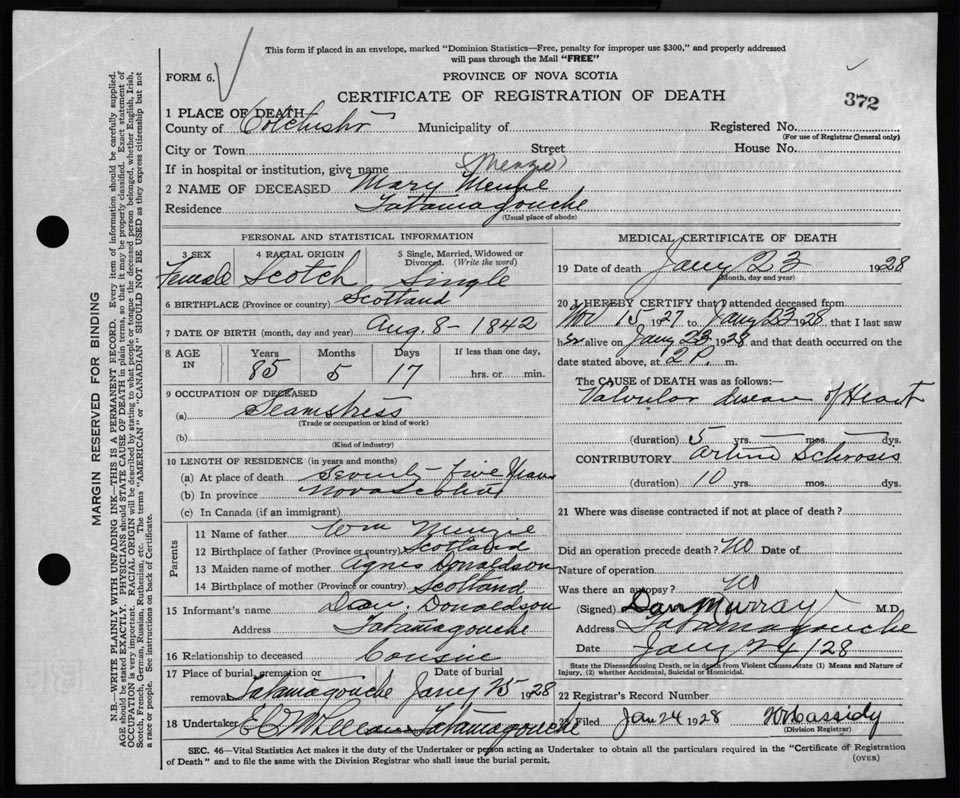 This form if placed in an envelope, marked "Dominion Statistics—Free, penalty for improper use $300," and properly addressed
will pass through the Mail "FREE"
FORM 6.
PROVINCE OF NOVA SCOTIA
CERTIFICATE OF REGISTRATION OF DEATH
372
1 PLACE OF DEATH
County of Colchester Municipality of Registered No.
(For use of Registrar General only)
City or Town Street House No.
If in hospital or institution, give name (Menzie)
2 NAME OF DECEASED Mary
Residence Tatamagouche
(Usual place of abode)
PERSONAL AND STATISTICAL INFORMATION
3 SEX 4 RACIAL ORIGIN 5 Single, Married, Widowed or Divorced. (Write the word)
Female Scotch Single
6 BIRTHPLACE (Province or country) Scotland
7 DATE OF BIRTH (month, day and year) Aug. 8 - 1842
8. AGE IN Years Months Days If less than one day,
85 5 17 hrs. or min.
9 OCCUPATION OF DECEASED
(a) Seamstress
(Trade or occupation or kind of work)
(b)
(Kind of industry)
10 LENGTH OF RESIDENCE (in years and months)
(a) At place of death Seventy-five Years
(b) In province Nova Scotia
(c) In Canada (if an immigrant)
Parents
11 Name of father Wm Menzie
12 Birthplace of father (Province or country) Scotland
13 Maiden name of mother Agnes Donaldson
14 Birthplace of mother (Province or country) Scotland
15 Informant's name Donaldson
Address Tatamagouche
16 Relationship to deceased Cousin
17 Place of burial, cremation or removal Date of burial
Tatamagouche Jany 25 1928
18 Undertaker Tatamagouche
MEDICAL CERTIFICATE OF DEATH
19 Date of death Jany 23 1928
(Month, day and year)
20 I HEREBY CERTIFY that I attended deceased from
Nov 15 1927 to Jany 23 1928. that I last saw
her alive on Jany 23 1928 and that death occurred on the
date stated above, at 2 P. m.
The CAUSE of DEATH was as follows:—
Valvular disease of Heart
(duration) 5 yrs. mos. dys.
CONTRIBUTORY
(duration) 10 yrs. mos. dys.
21 Where was disease contracted if not at place of death?
Did an operation precede death? No Date of
Nature of operation
Was there an autopsy? No
(Signed) Dan Murray M.D.
Address Tatamagouche
Date Jany 24/28
State the Disease causing Death, or in death from Violent Causes state (1) Means and Nature of
Injury, (2) whether Accidental, Suicidal or Homicidal.
22 Registrar's Record Number
23 Filed Jan 24 1928 Cassidy
(Division Registrar)
SEC. 46—Vital Statistics Act makes it the duty of the Undertaker or person acting as Undertaker to obtain all the particulars required in the "Certificate of Registration
of Death" and to file the same with the Division Registrar who shall issue the burial permit.
(OVER)
MARGIN RESERVED FOR BINDING
N.B.—WRITE PLAINLY WITH UNFADING INK—THIS IS A PERMANENT RECORD. Every item of information should be carefully supplied.
AGE should be stated EXACTLY. PHYSICIANS should STATE CAUSE OF DEATH in plain terms, so that it may be properly classified. Exact statement of
OCCUPATION is very important. RACIAL ORIGIN will be described by stating to what people or tongue the deceased person belonged, whether English, Irish,
Scotch, French, German, Russian, Ruthenian, etc. The terms "AMERICAN" or "CANADIAN" SHOULD NOT BE USED as they express citizenship but not
a race or people. See instructions on back of Certificate.